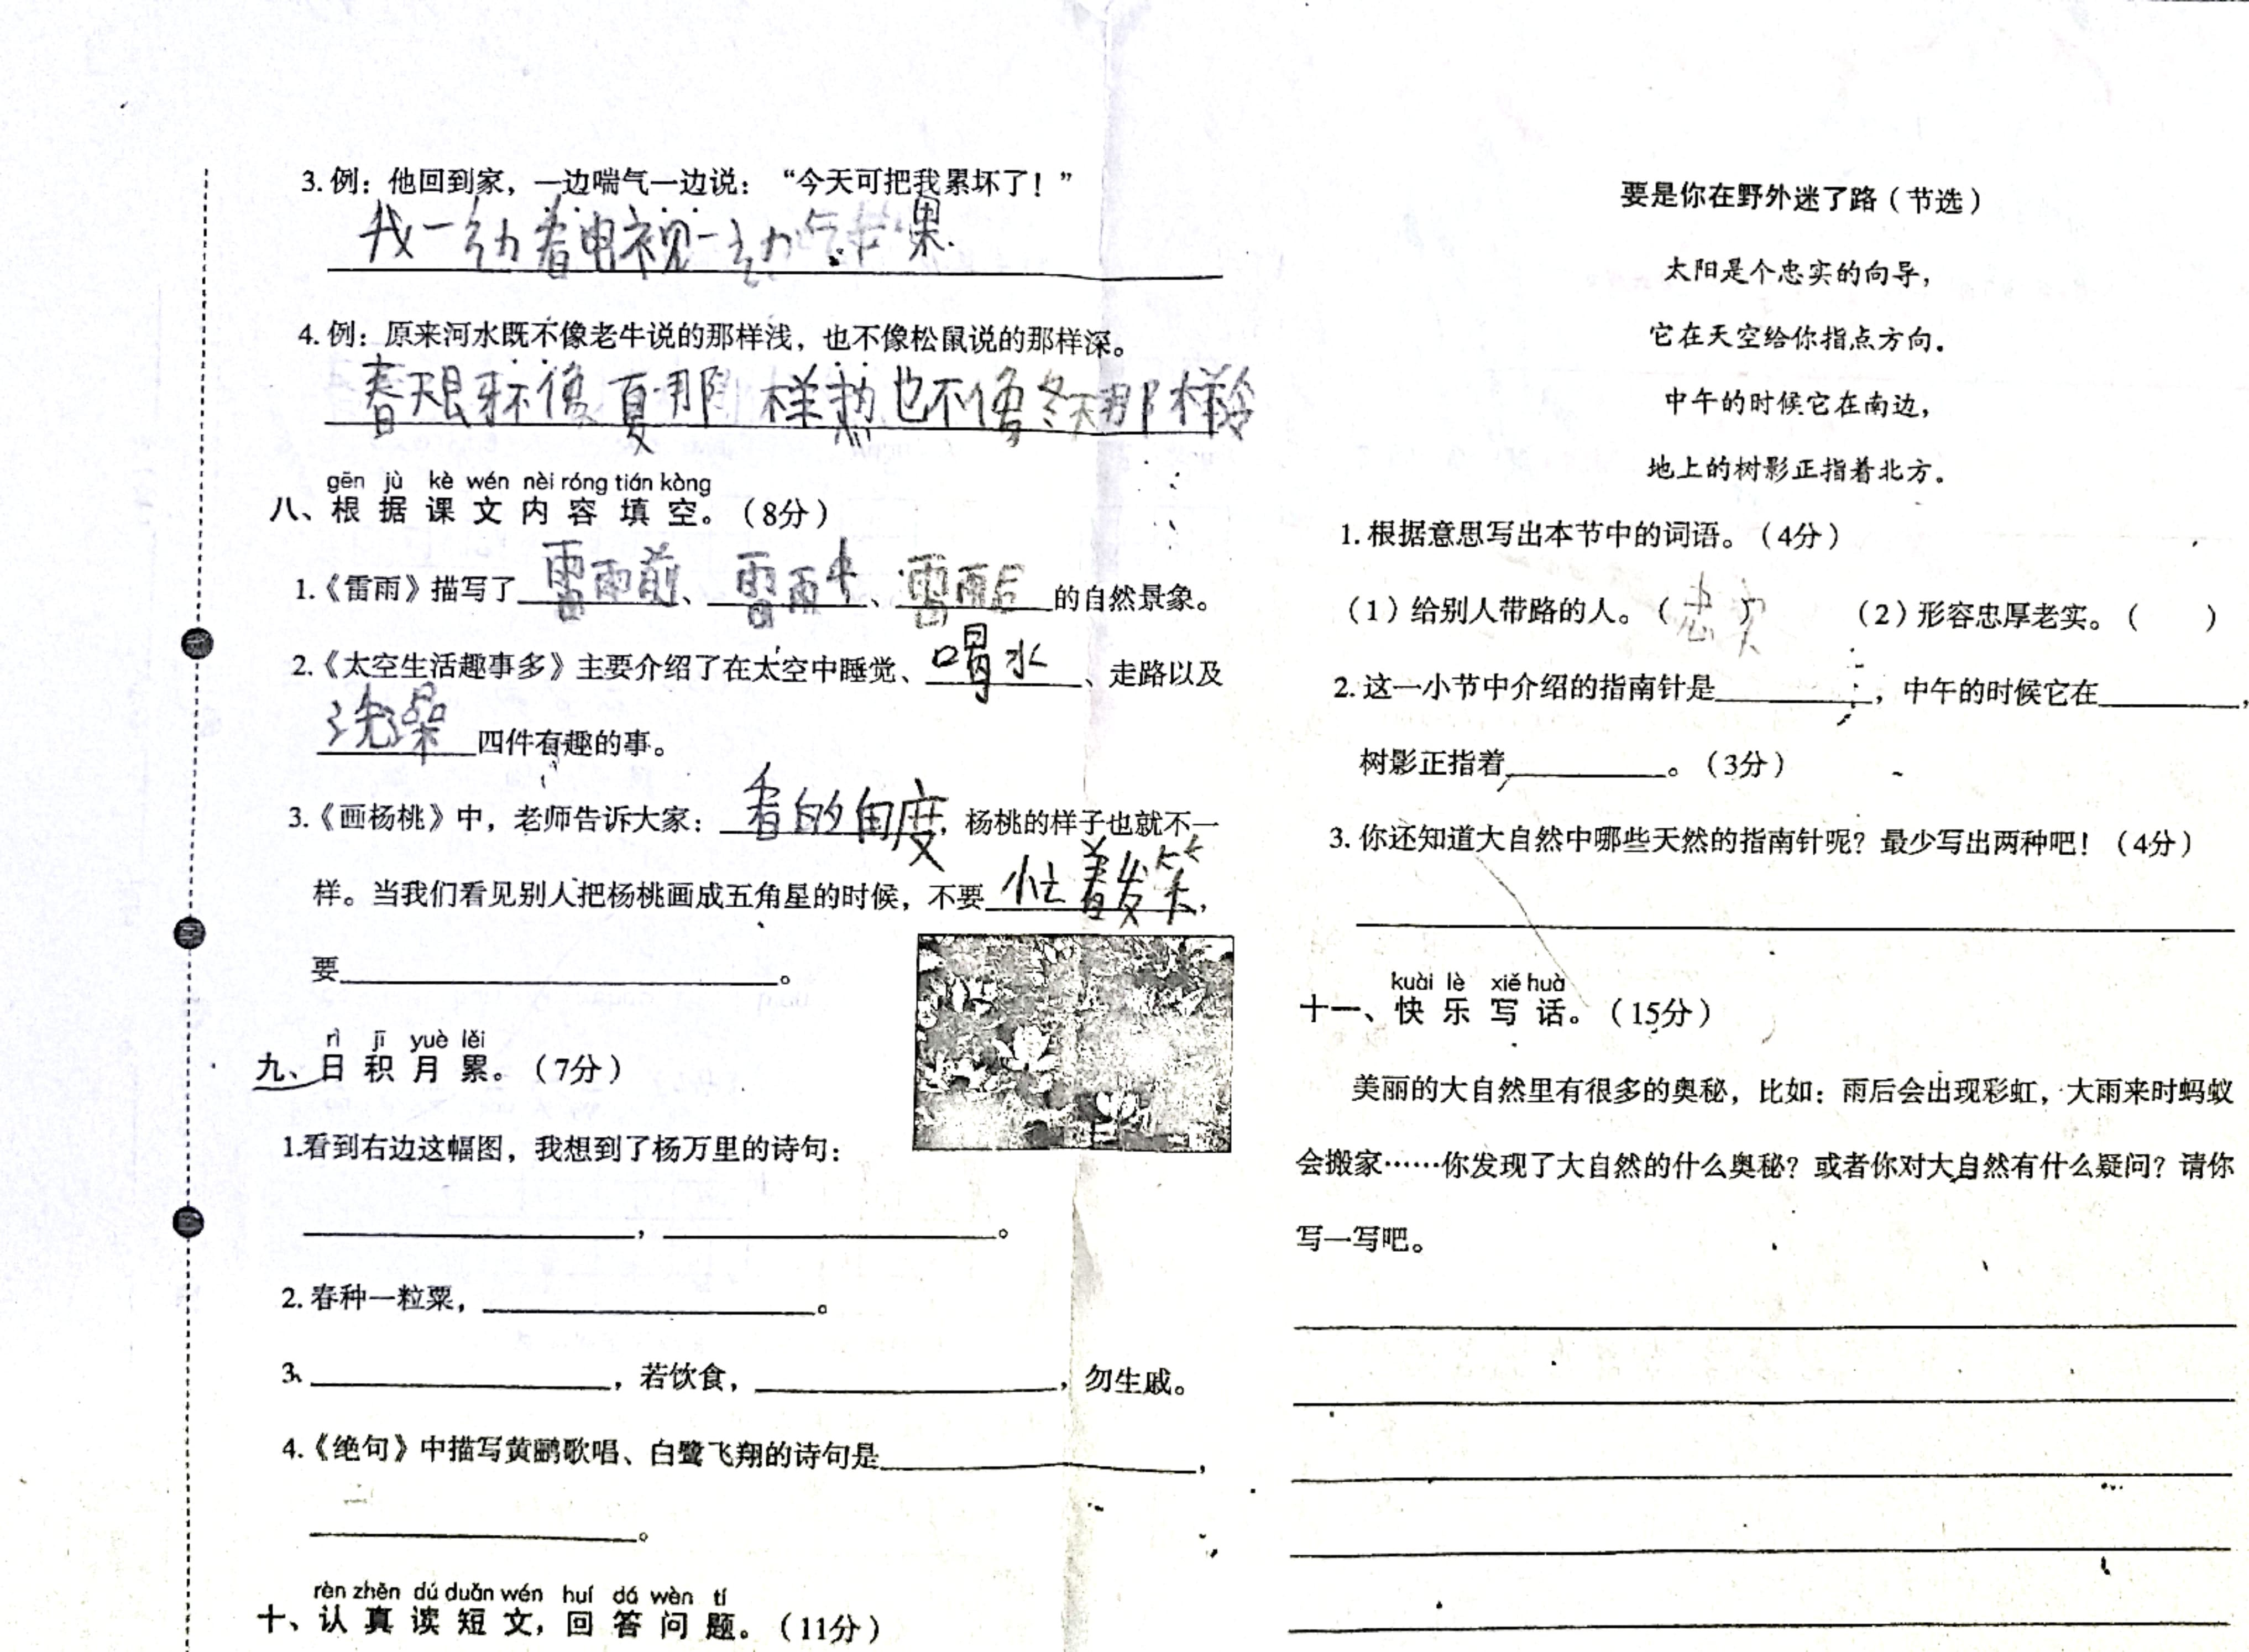 3. 例：他回到家，一边喘气一边说：“今天可把我累坏了！”
我一 看电视一 果.
4. 例：原来河水既不像老牛说的那样浅，也不像松鼠说的那样深。
春天 不像夏那样热也不像冬天那样冷
gēn jù kè wén nèi róng tián kòng
八、根据课文内容填空。（8分）
1.《雷雨》描写了雷雨前、雷雨中、雷雨后的自然景象。
2.《太空生活趣事多》主要介绍了在太空中睡觉、喝水、走路以及
洗澡四件有趣的事。
3.《画杨桃》中，老师告诉大家：看的角度，杨桃的样子也就不一
样。当我们看见别人把杨桃画成五角星的时候，不要忙着发笑，
要 。
rì jī yuè lěi
九、日积月累。（7分）
1.看到右边这幅图，我想到了杨万里的诗句：
， 。
2. 春种一粒粟， 。
3. ，若饮食， ，勿生戚。
4.《绝句》中描写黄鹂歌唱、白鹭飞翔的诗句是 ，
。
rèn zhēn dú duǎn wén huí dá wèn tí
十、认真读短文，回答问题。（11分）
要是你在野外迷了路（节选）
太阳是个忠实的向导，
它在天空给你指点方向。
中午的时候它在南边，
地上的树影正指着北方。
1. 根据意思写出本节中的词语。（4分）
（1）给别人带路的人。（忠实） （2）形容忠厚老实。（ ）
2. 这一小节中介绍的指南针是 ，中午的时候它在 ，
树影正指着 。（3分）
3. 你还知道大自然中哪些天然的指南针呢？最少写出两种吧！（4分）
kuài lè xiě huà
十一、快乐写话。（15分）
美丽的大自然里有很多的奥秘，比如：雨后会出现彩虹，大雨来时蚂蚁
会搬家……你发现了大自然的什么奥秘？或者你对大自然有什么疑问？请你
写一写吧。